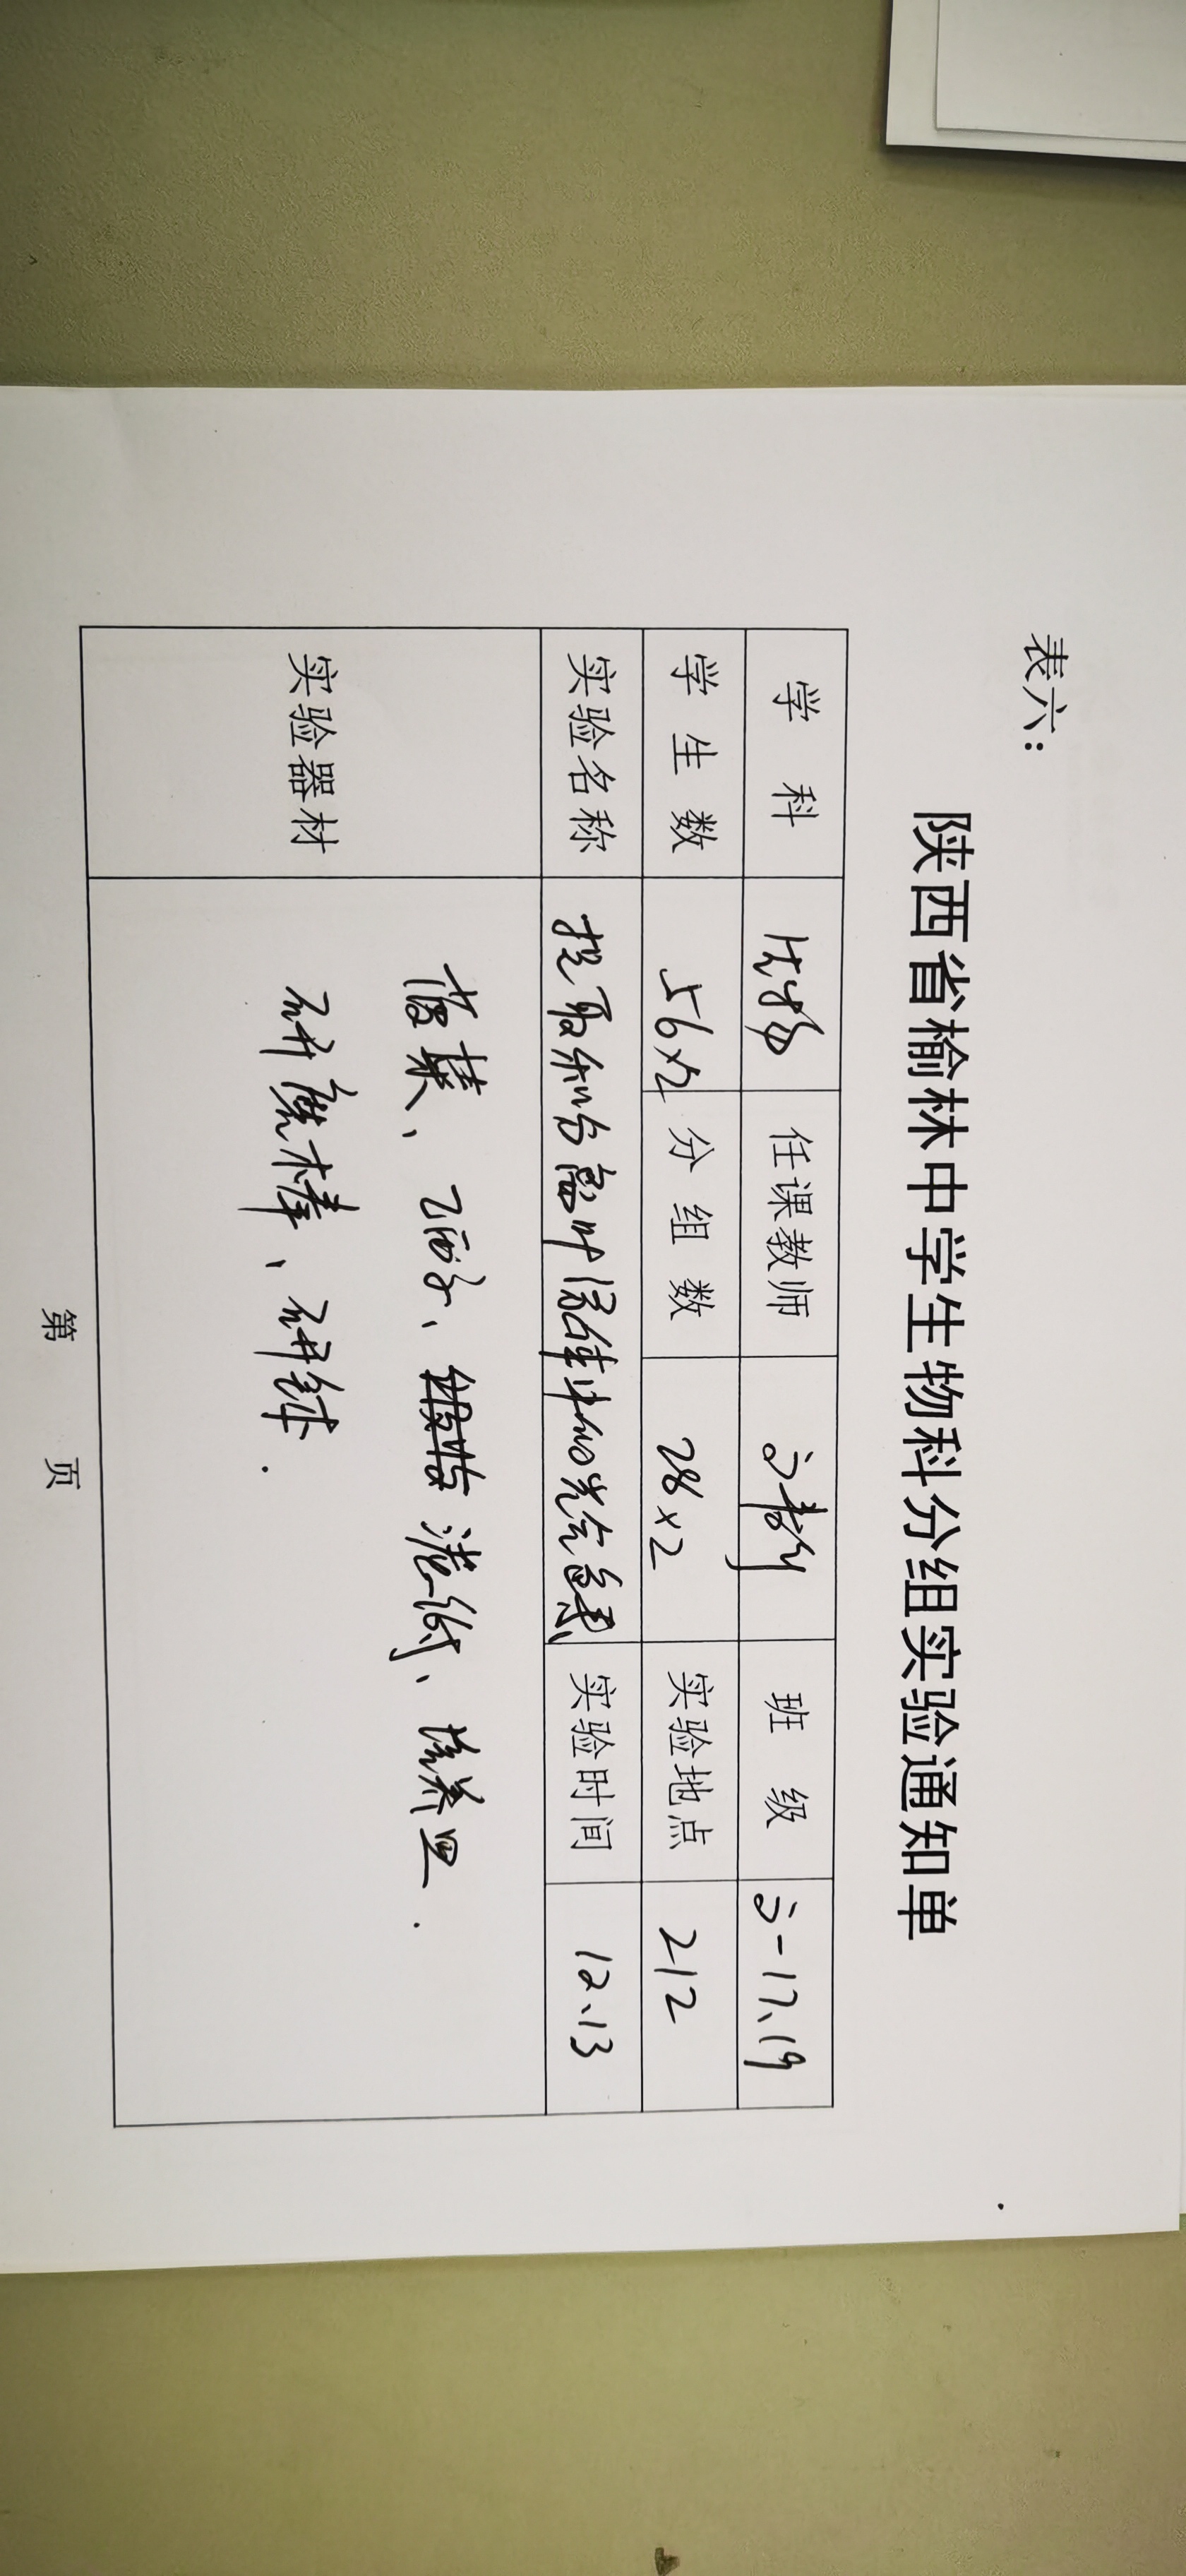 表六：
陕西省榆林中学生物科分组实验通知单
学 科 生物 任课教师 班 级 高一17、19
学 生 数 56×2 分 组 数 28×2 实验地点 212
实验名称 提取和分离叶绿体中的光合色素 实验时间 12、13
实验器材
菠菜、乙醇、滤纸、培养皿.
研磨棒、研钵.
第 页